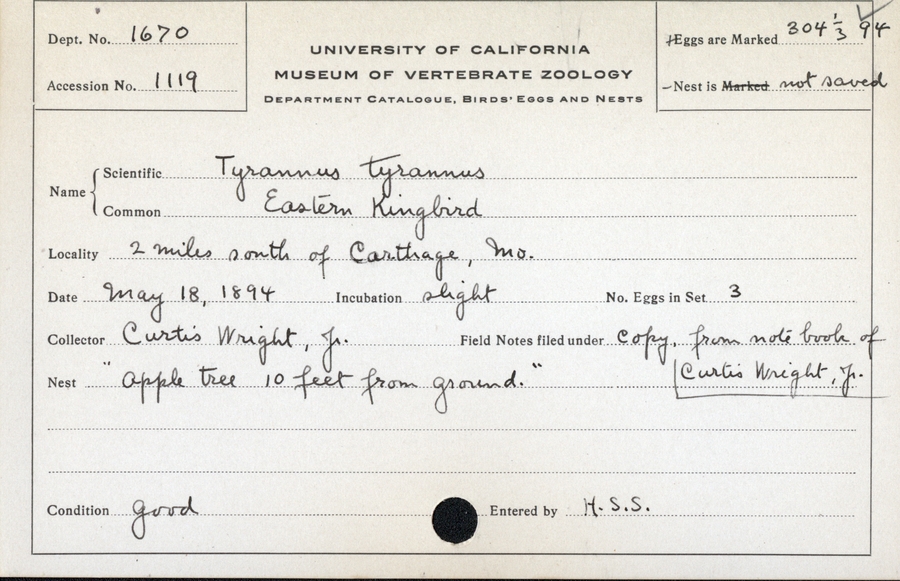 Dept. No. 1670
Accession No. 1119
UNIVERSITY OF CALIFORNIA
MUSEUM OF VERTEBRATE ZOOLOGY
DEPARTMENT CATALOGUE, BIRDS' EGGS AND NESTS
Eggs are Marked 304 1/3 94
Nest is Marked not saved
Name
Scientific Tyrannus tyrannus
Common Eastern Kingbird
Locality 2 miles south of Carthage, Mo.
Date May 18, 1894 Incubation slight No. Eggs in Set 3
Collector Curtis Wright, Jr. Field Notes filed under copy, from note book of
Nest "apple tree 10 feet from ground." Curtis Wright, Jr.
Condition good Entered by H.S.S.